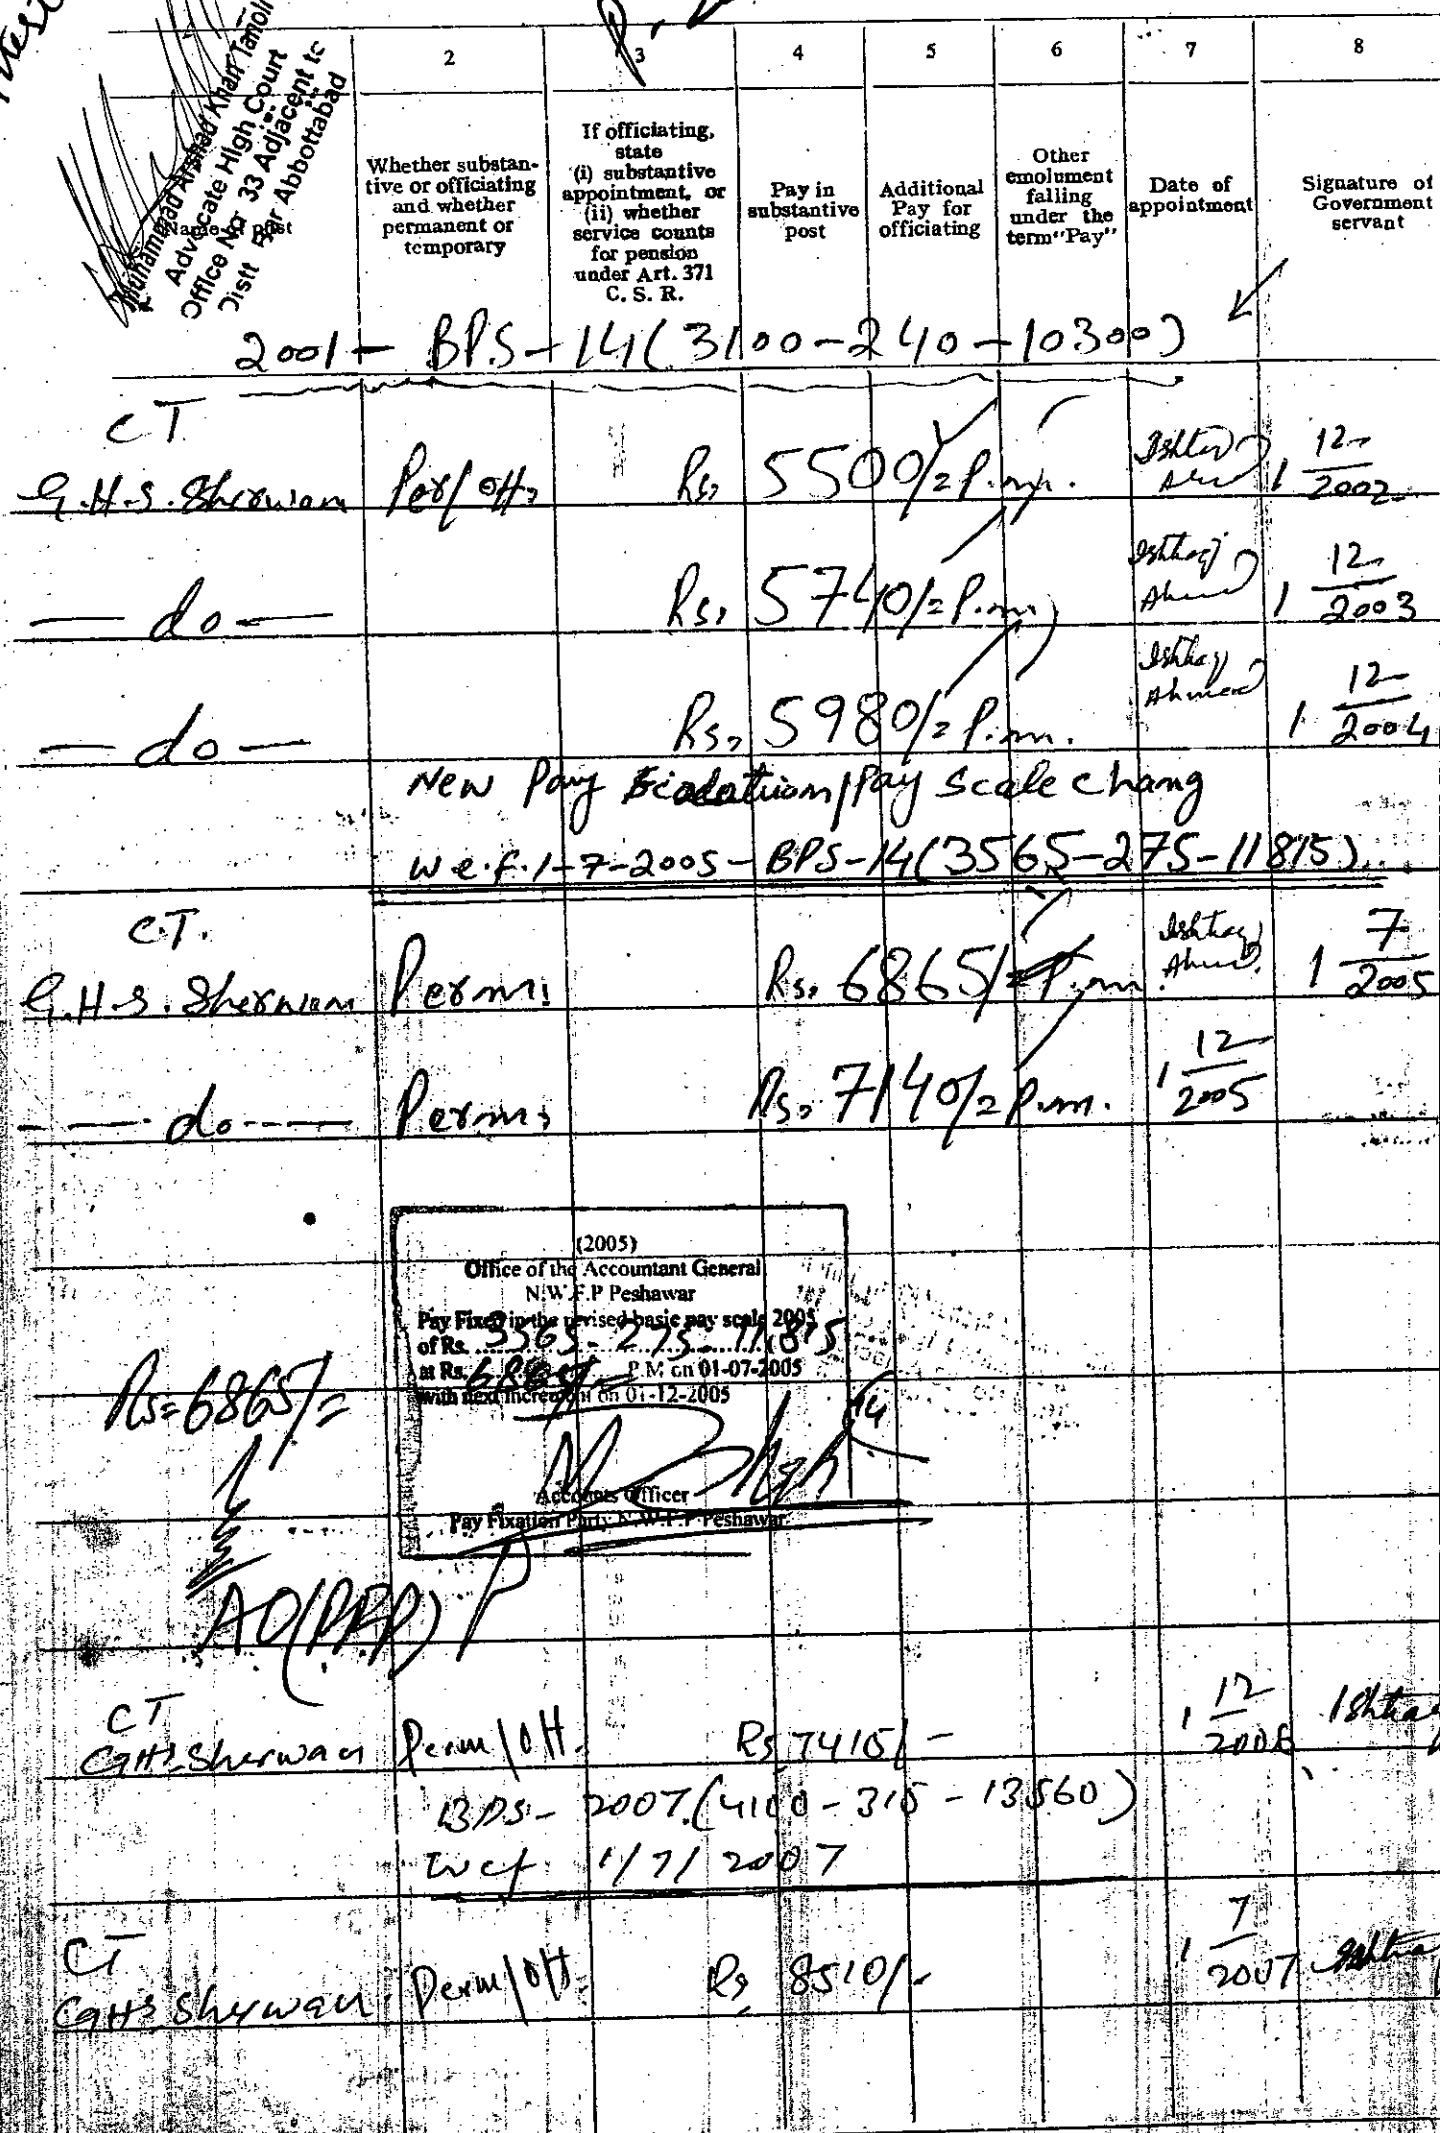 Muhammad Arshad Khan Tanoli
Advocate High Court
Office No 33 Adjacent to
Distt Bar Abbottabad
2 3 4 5 6 7 8
Name of post
Whether substan-
tive or officiating
and whether
permanent or
temporary
If officiating,
state
(i) substantive
appointment, or
(ii) whether
service counts
for pension
under Art. 371
C. S. R.
Pay in
substantive
post
Additional
Pay for
officiating
Other
emolument
falling
under the
term "Pay"
Date of
appointment
Signature of
Government
servant
2001 - BPS - 14 (3100-240-10300)
CT
G.H.S. Sherwan Per/off, Rs, 5500/= P.m. Ishtiaq 1 12
2002
— do — Rs, 5740/= P.m. Ishtiaq Ahmed 1 12
2003
— do — Rs, 5980/= P.m. Ishtiaq Ahmed 1 12
2004
New Pay Pay Scale Chang
w.e.f. 1-7-2005 - BPS-14 (3565-275-11815)
C.T.
G.H.S. Sherwan Perm: Rs. 6865/= P.m. Ishtiaq Ahmed. 1 7
2005
— do — Perm: Rs. 7140/= P.m. 1 12
2005
(2005)
Office of the Accountant General
N.W.F.P Peshawar
Pay Fixed in the revised basic pay scale 2005
of Rs. 3565-275-11815
at Rs. 6865/= P.M. on 01-07-2005
with next increment on 01-12-2005
Rs=6865/=
14
Accounts Officer
Pay Fixation Party N.W.F.P Peshawar
AO(PFP)
CT
GHS Sherwan Perm/Off. Rs 7415/- 1 12
2006 Ishtiaq
BPS- 2007 (4100-315-13560)
wef 1/7/2007
CT
GHS Sherwan Perm/Off. Rs 8510/- 1 7
2007 Ishtiaq